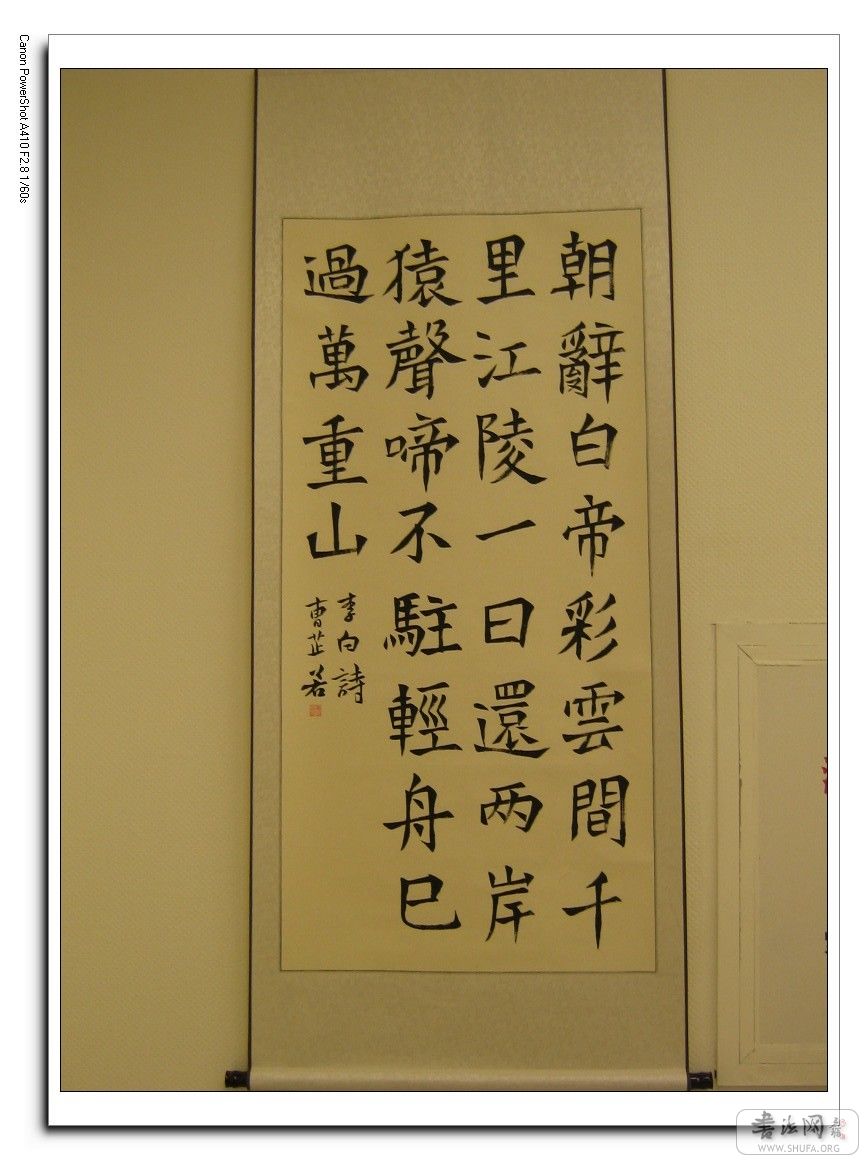 朝辭白帝彩雲間千
里江陵一日還两岸
猿聲啼不駐輕舟已
過萬重山
李白詩
曹芷若
Canon PowerShot A410 F2.8 1/60s
书法网
WWW.SHUFA.ORG